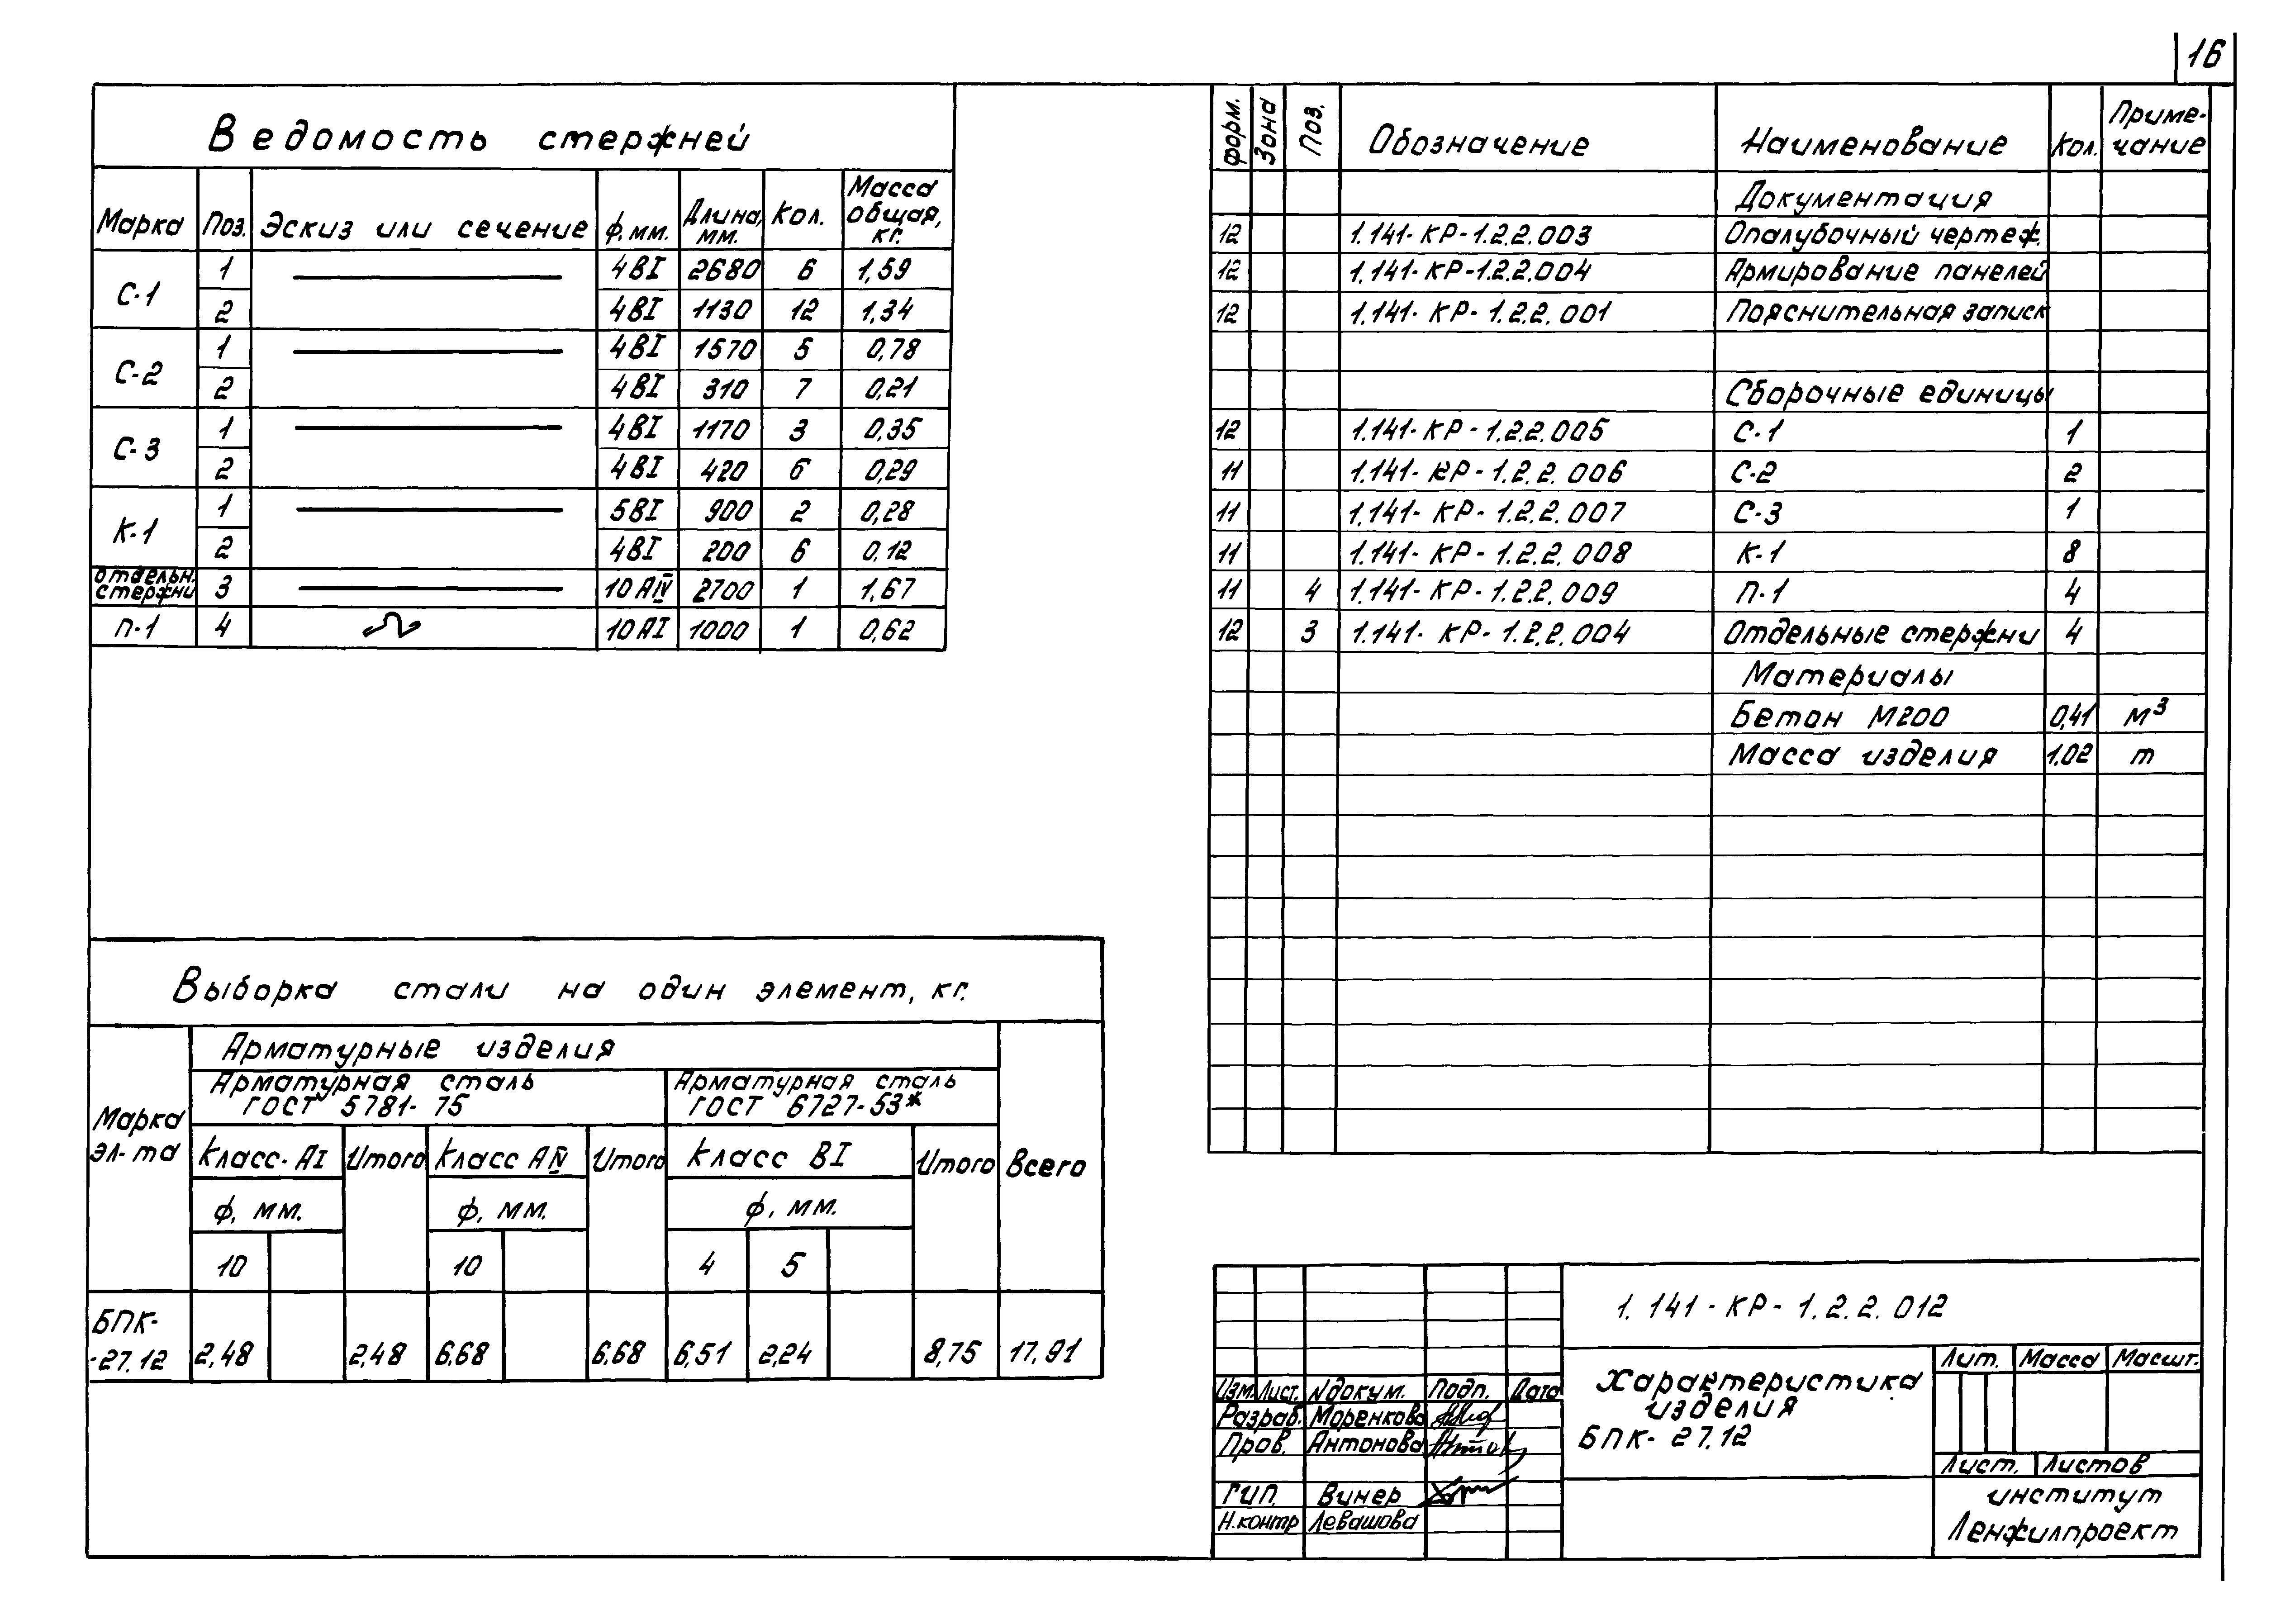 16
Ведомость стержней
Марка Поз. Эскиз или сечение ф, мм. Длина, мм. Кол. Масса общая, кг.
С-1 1 4ВI 2680 6 1,59
2 4ВI 1130 12 1,34
С-2 1 4ВI 1570 5 0,78
2 4ВI 310 7 0,21
С-3 1 4ВI 1170 3 0,35
2 4ВI 420 6 0,29
К-1 1 5ВI 900 2 0,28
2 4ВI 200 6 0,12
отдельн. стержни 3 10 АIV 2700 1 1,67
П-1 4 10 АI 1000 1 0,62
форм. Зона Поз. Обозначение Наименование Кол. Приме-чание
Документация
12 1.141-КР-1.2.2.003 Опалубочный чертеж.
12 1.141-КР-1.2.2.004 Армирование панелей
12 1.141-КР-1.2.2.001 Пояснительная записк
Сборочные единицы
12 1.141-КР-1.2.2.005 С-1 1
11 1.141-КР-1.2.2.006 С-2 2
11 1.141-КР-1.2.2.007 С-3 1
11 1.141-КР-1.2.2.008 К-1 8
11 4 1.141-КР-1.2.2.009 П-1 4
12 3 1.141-КР-1.2.2.004 Отдельные стержни 4
Материалы
Бетон М200 0,41 м³
Масса изделия 1.02 т
Выборка стали на один элемент, кг.
Марка эл-та Арматурные изделия Всего
Арматурная сталь ГОСТ 5781-75 Арматурная сталь ГОСТ 6727-53*
Класс-АI Итого Класс АIV Итого Класс ВI Итого
ф, мм. ф, мм. ф, мм.
10 10 4 5
БПК-
-27.12 2,48 2,48 6.68 6,68 6,51 2,24 8,75 17.91
1.141-КР-1.2.2.012
Изм. Лист. N докум. Подп. Дата
Разраб. Моренкова
Пров. Антонова
ГИП. Винер
Н.контр Левашова
Характеристика
изделия
БПК-27.12
Лит. Масса Масшт.
Лист. Листов
институт
Ленжилпроект